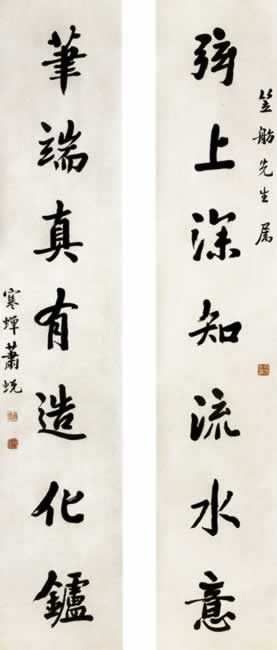 笠舫先生属
弦上深知流水意
筆端真有造化鑪
寒蟬蕭蜕